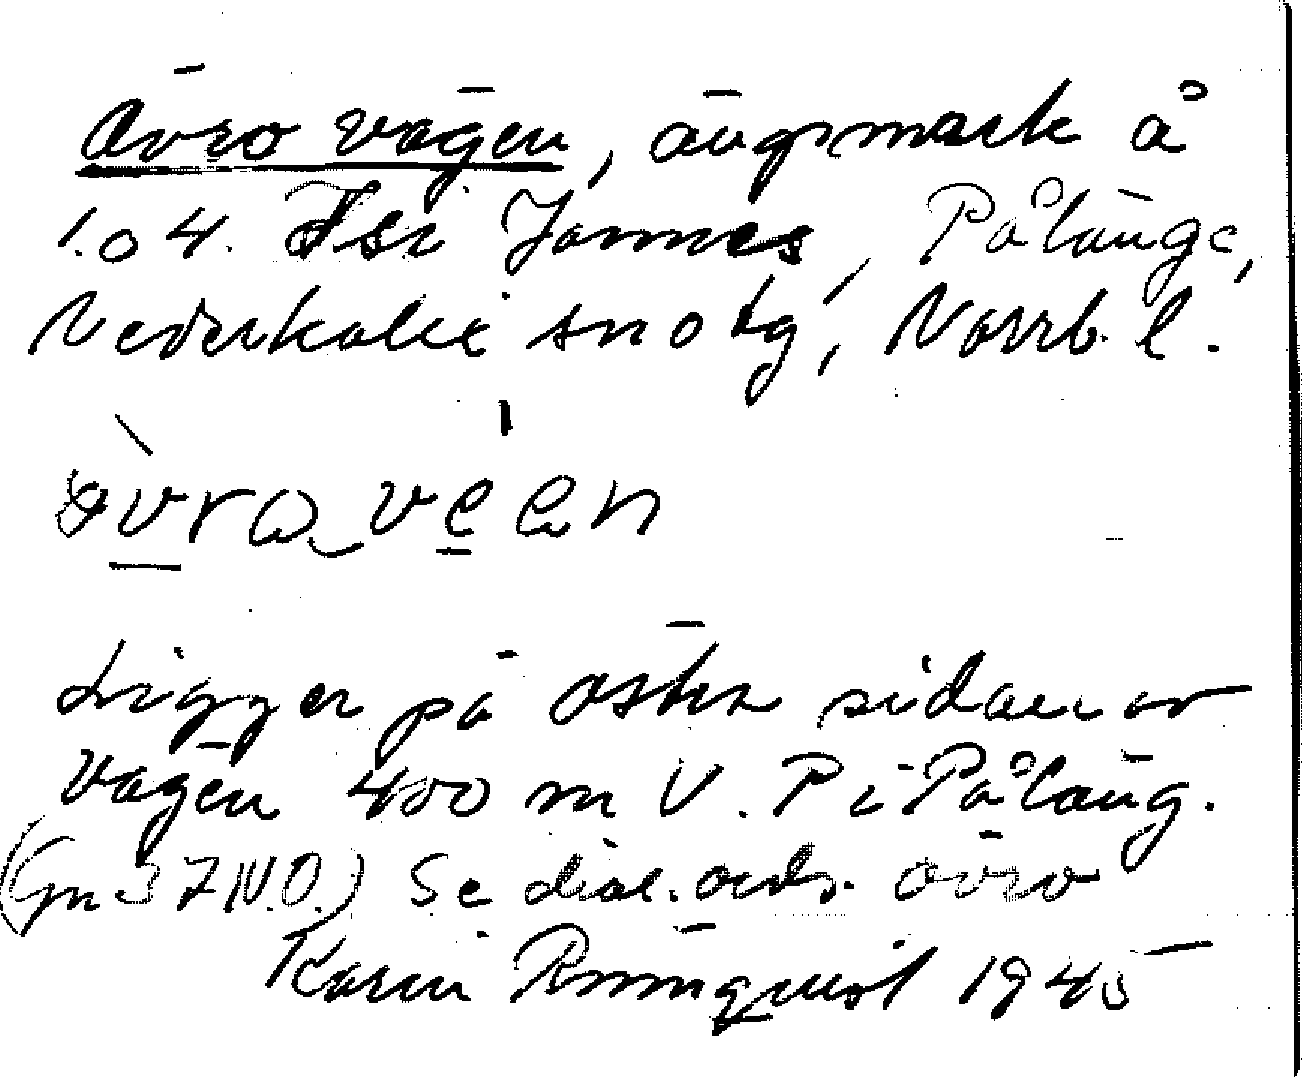 Övro vägen, ängsmark å
1.04. Hsi Jonnes, Pålänge,
Nederkalix snotg, Norrb. l.
Ligger på östra sidan av
vägen 400 m V. P i Påläng.
(Gn 37 N.O.) Se dial. ordr. övro
Karin Rönnquist 1945